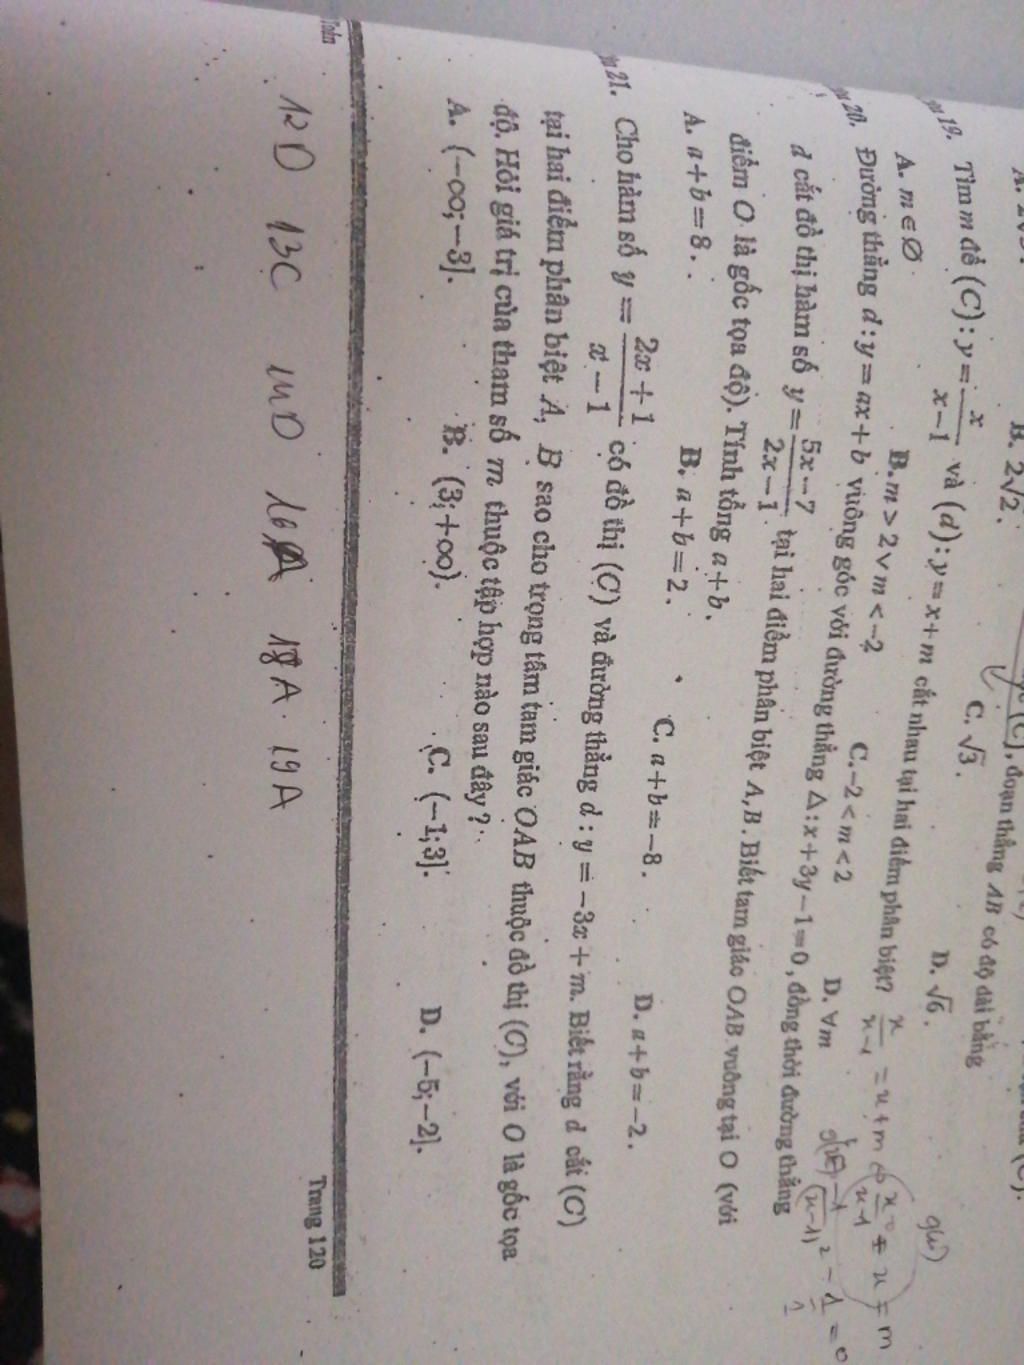 B. 2√2.
C. √3.
D. √6.
(C), đoạn thẳng AB có độ dài bằng
19. Tìm m để (C): y = x/(x−1) và (d): y = x + m cắt nhau tại hai điểm phân biệt?
A. m ∈ ∅
B. m > 2 ∨ m < −2
C. −2 < m < 2
D. ∀m
20. Đường thẳng d: y = ax + b vuông góc với đường thẳng Δ: x + 3y − 1 = 0, đồng thời đường thẳng
d cắt đồ thị hàm số y = (5x−7)/(2x−1) tại hai điểm phân biệt A, B. Biết tam giác OAB vuông tại O (với
điểm O là gốc tọa độ). Tính tổng a + b.
A. a + b = 8.
B. a + b = 2.
C. a + b = −8.
D. a + b = −2.
21. Cho hàm số y = (2x+1)/(x−1) có đồ thị (C) và đường thẳng d: y = −3x + m. Biết rằng d cắt (C)
tại hai điểm phân biệt A, B sao cho trọng tâm tam giác OAB thuộc đồ thị (C), với O là gốc tọa
độ. Hỏi giá trị của tham số m thuộc tập hợp nào sau đây?
A. (−∞; −3].
B. (3; +∞).
C. (−1; 3].
D. (−5; −2].
Toán
Trang 120
12D 13C 14D 16A 18A 19A